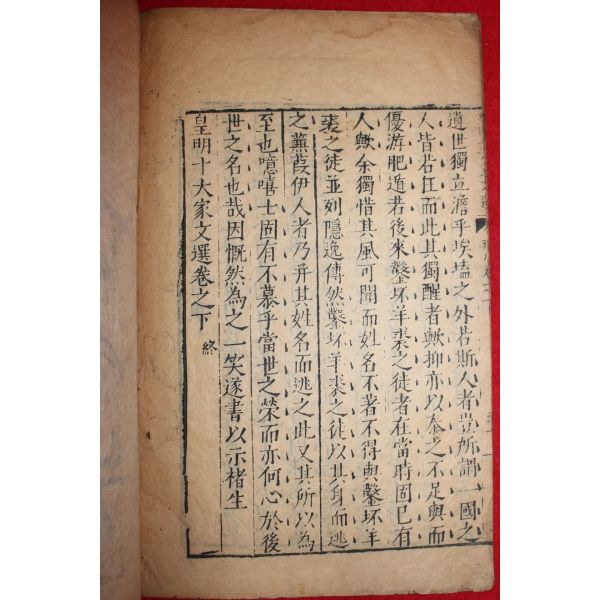 遺世獨立澹乎埃壒之外若斯人者豈所謂一國之
人皆若狂而此其獨醒者歟抑亦以秦之不足與而
優游肥遁若後來鑿坏羊裘之徒者在當時固已有
人歟余獨惜其風可聞而姓名不著不得與鑿坏羊
裘之徒並列隱逸傳然鑿坏羊裘之徒以其身而逃
之蒹葭伊人者乃并其姓名而逃之此又其所以為
至也噫嘻士固有不慕乎當世之榮而亦何心於後
世之名也哉因慨然為之一笑遂書以示楮生
皇明十大家文選卷之下 終